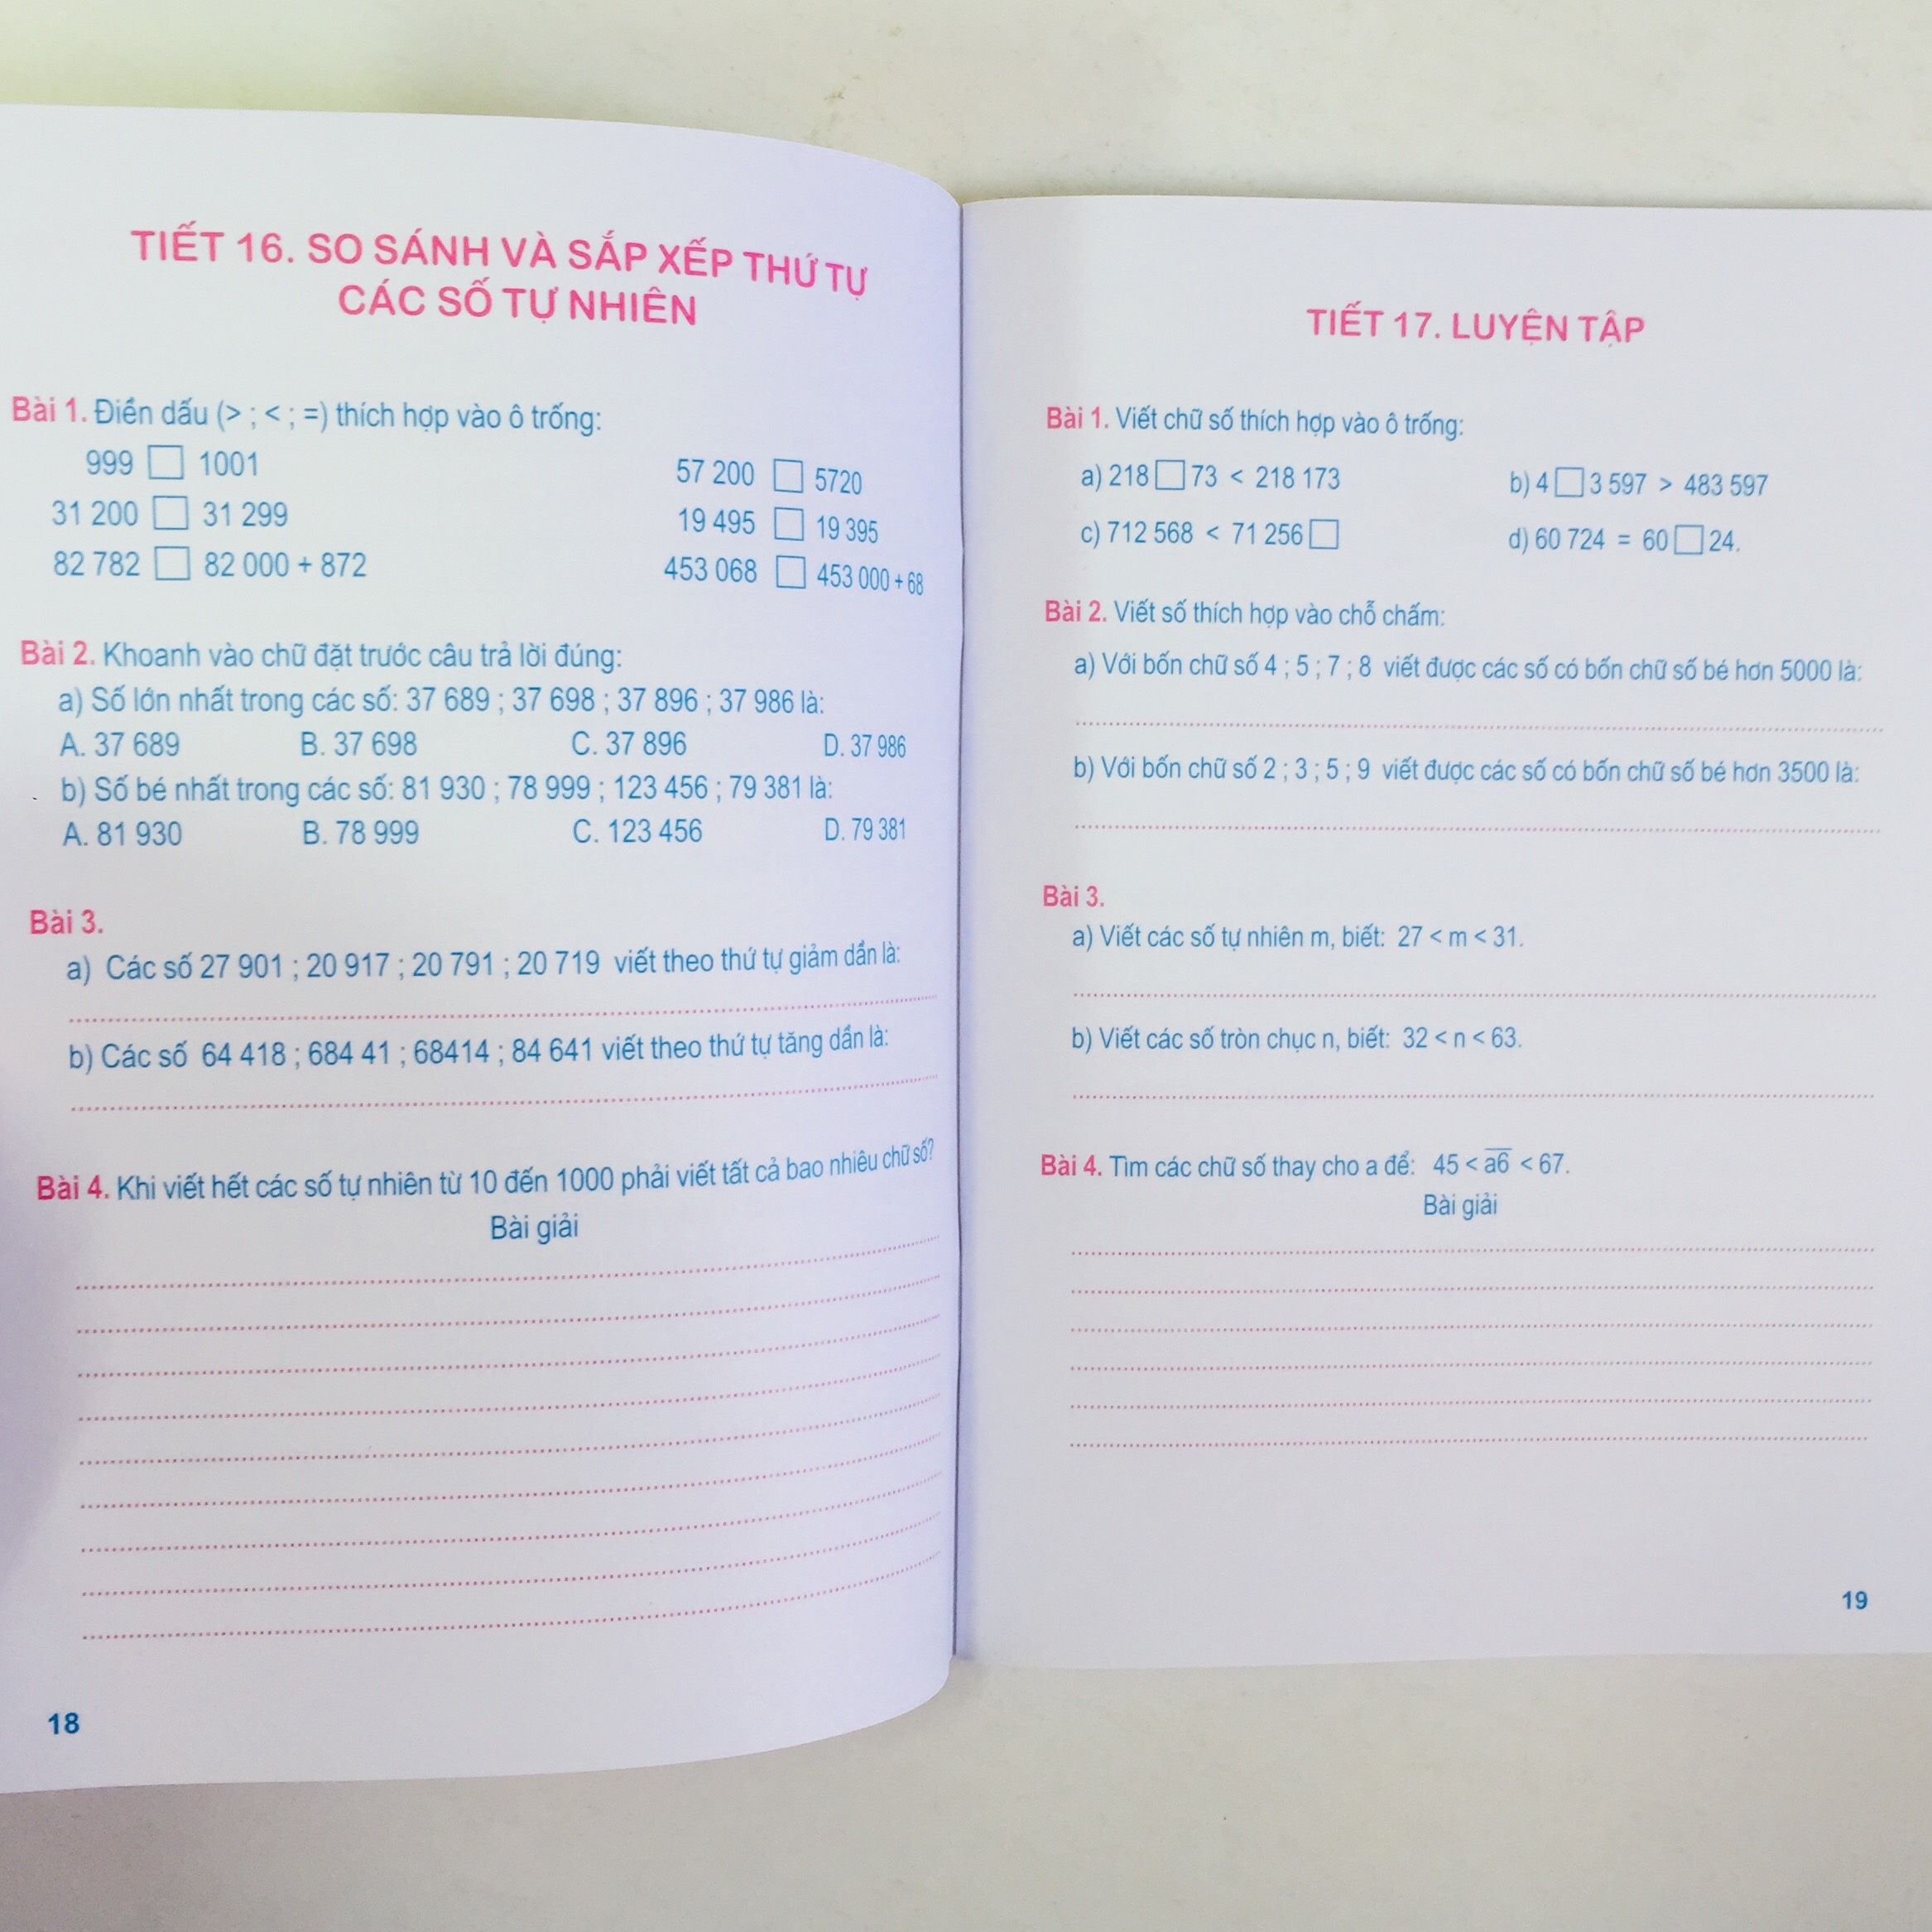 TIẾT 16. SO SÁNH VÀ SẮP XẾP THỨ TỰ
CÁC SỐ TỰ NHIÊN
Bài 1. Điền dấu (> ; < ; =) thích hợp vào ô trống:
999 □ 1001
57 200 □ 5720
31 200 □ 31 299
19 495 □ 19 395
82 782 □ 82 000 + 872
453 068 □ 453 000 + 68
Bài 2. Khoanh vào chữ đặt trước câu trả lời đúng:
a) Số lớn nhất trong các số: 37 689 ; 37 698 ; 37 896 ; 37 986 là:
A. 37 689 B. 37 698 C. 37 896 D. 37 986
b) Số bé nhất trong các số: 81 930 ; 78 999 ; 123 456 ; 79 381 là:
A. 81 930 B. 78 999 C. 123 456 D. 79 381
Bài 3.
a) Các số 27 901 ; 20 917 ; 20 791 ; 20 719 viết theo thứ tự giảm dần là:
b) Các số 64 418 ; 684 41 ; 68414 ; 84 641 viết theo thứ tự tăng dần là:
Bài 4. Khi viết hết các số tự nhiên từ 10 đến 1000 phải viết tất cả bao nhiêu chữ số?
Bài giải
18
TIẾT 17. LUYỆN TẬP
Bài 1. Viết chữ số thích hợp vào ô trống:
a) 218 □ 73 < 218 173
b) 4 □ 3 597 > 483 597
c) 712 568 < 71 256 □
d) 60 724 = 60 □ 24.
Bài 2. Viết số thích hợp vào chỗ chấm:
a) Với bốn chữ số 4 ; 5 ; 7 ; 8 viết được các số có bốn chữ số bé hơn 5000 là:
b) Với bốn chữ số 2 ; 3 ; 5 ; 9 viết được các số có bốn chữ số bé hơn 3500 là:
Bài 3.
a) Viết các số tự nhiên m, biết: 27 < m < 31.
b) Viết các số tròn chục n, biết: 32 < n < 63.
Bài 4. Tìm các chữ số thay cho a để: 45 < a̅6̅ < 67.
Bài giải
19